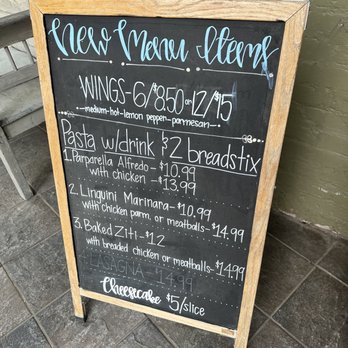 New Menu Items
WINGS-6/$8.50 or 12/$15
medium-hot-lemon pepper-parmesan
Pasta w/drink & 2 breadstix
1. Parparella Alfredo- $10.99
with chicken - $13.99
2. Linguini Marinara- $10.99
with chicken parm. or meatballs- $14.99
3. Baked Ziti- $12
with breaded chicken or meatballs- $14.99
LASAGNA- 14.99
Cheesecake $5/slice